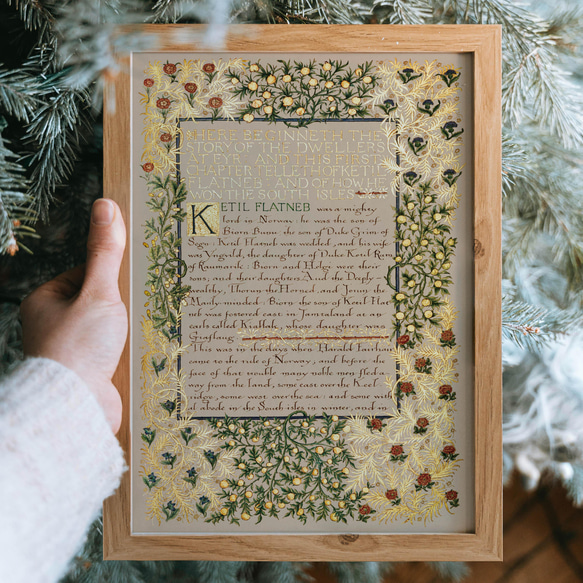 HERE BEGINNETH THE
STORY OF THE DWELLERS
AT EYR AND THIS FIRST
CHAPTER TELLETH OF KETIL
FLATNEB AND OF HOW HE
WON THE SOUTH ISLES
KETIL FLATNEB was a mighty
lord in Norway: he was the son of
Biorn Buna the son of Duke Grim of
Sogn: Ketil Flatneb was wedded, and his wife
was Yngvild, the daughter of Duke Ketil Ram
of Raumarik: Biorn and Helgi were their
sons; and their daughters Aud the Deeply-
wealthy, Thorun the Horned, and Jorun the
Manly-minded: Biorn the son of Ketil Flat
neb was fostered east in Jamtaland as an
earls called Kiallak, whose daughter was
Giaflaug
This was in the days when Harald Fairhair
came to the rule of Norway, and before the
face of that trouble many noble men fled a
way from the land, some east over the Keel
ridge, some west over the sea: and some with
l abode in the South isles in winter, and